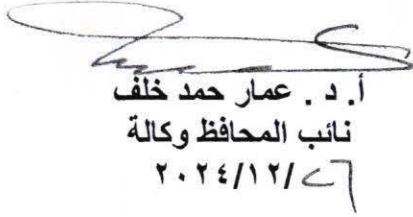 أ. د. عمار حمد خلف
نائب المحافظ وكالة
٢٠٢٤/١٢/٢٦